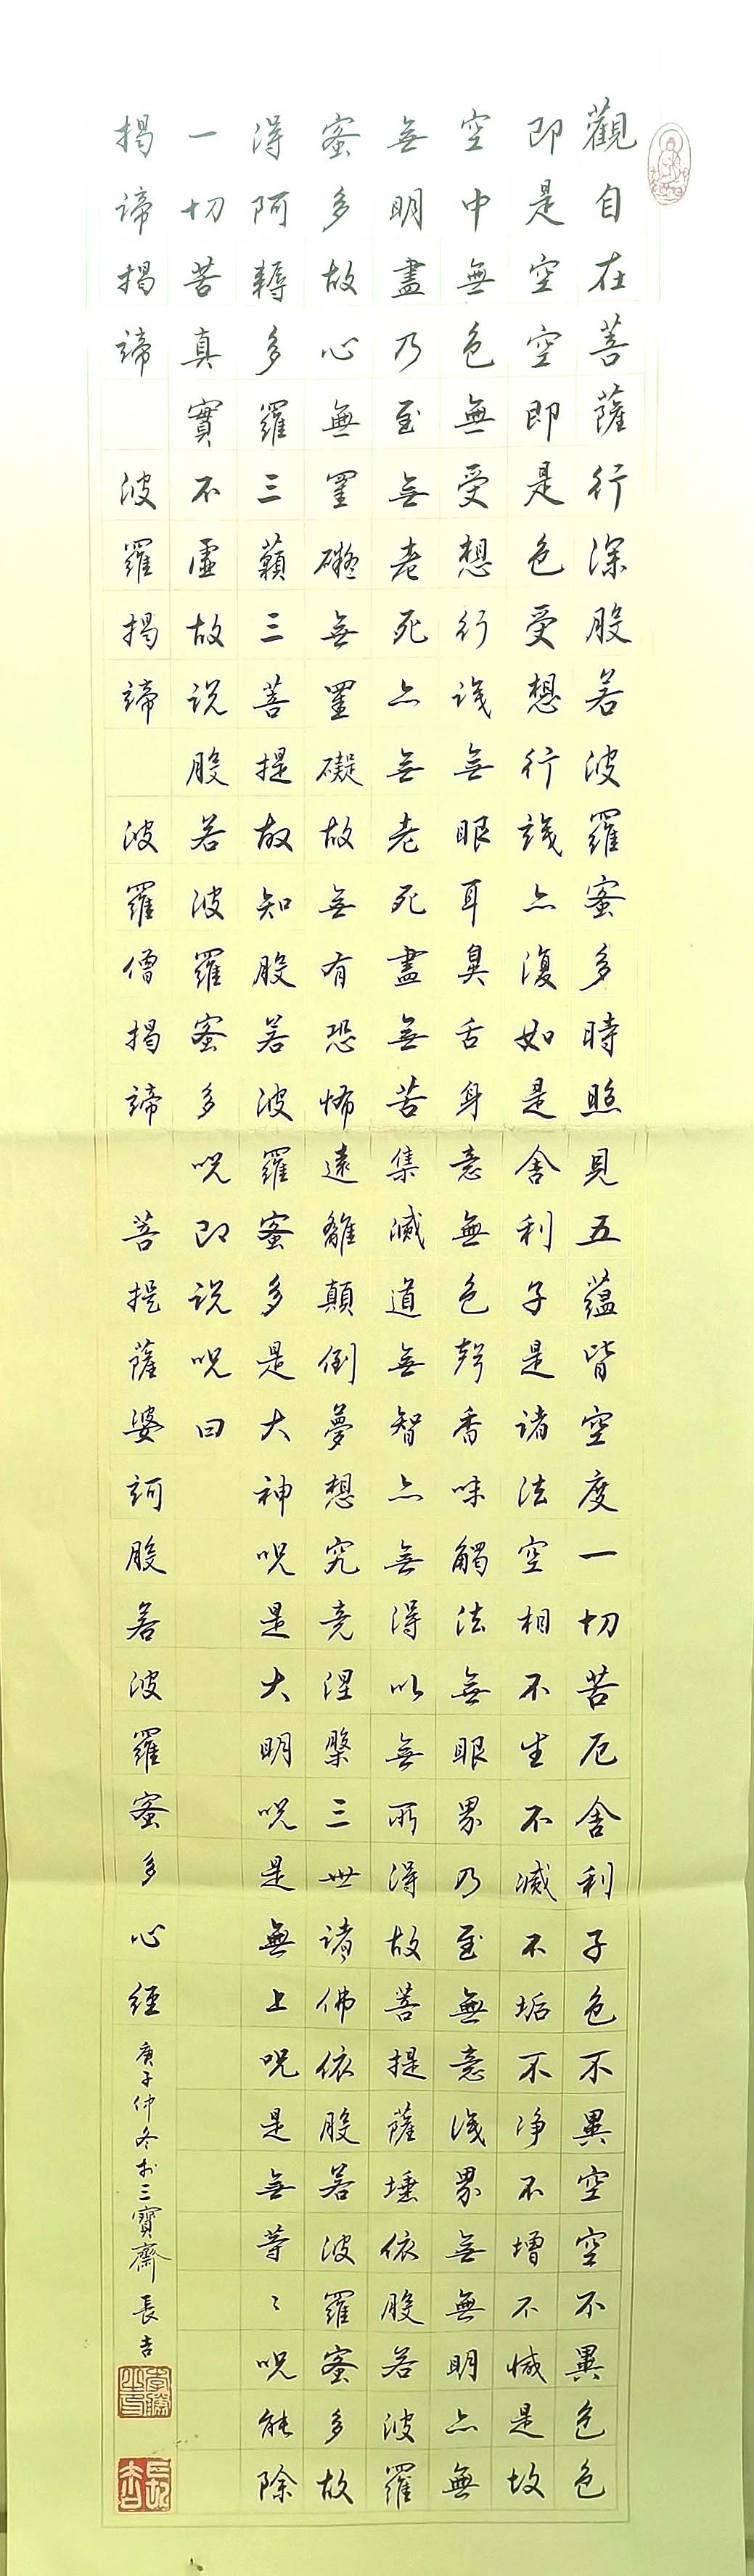 觀自在菩薩行深般若波羅蜜多時照見五蘊皆空度一切苦厄舍利子色不異空空不異色色
即是空空即是色受想行識亦復如是舍利子是諸法空相不生不滅不垢不淨不增不減是故
空中無色無受想行識無眼耳鼻舌身意無色聲香味觸法無眼界乃至無意識界無無明亦無
無明盡乃至無老死亦無老死盡無苦集滅道無智亦無得以無所得故菩提薩埵依般若波羅
蜜多故心無罣礙無罣礙故無有恐怖遠離顛倒夢想究竟涅槃三世諸佛依般若波羅蜜多故
得阿耨多羅三藐三菩提故知般若波羅蜜多是大神咒是大明咒是無上咒是無等々咒能除
一切苦真實不虛故說般若波羅蜜多咒即說咒曰
揭諦揭諦 波羅揭諦 波羅僧揭諦 菩提薩婆訶般若波羅蜜多心經 庚子仲冬於三寶齋 長吉
長吉